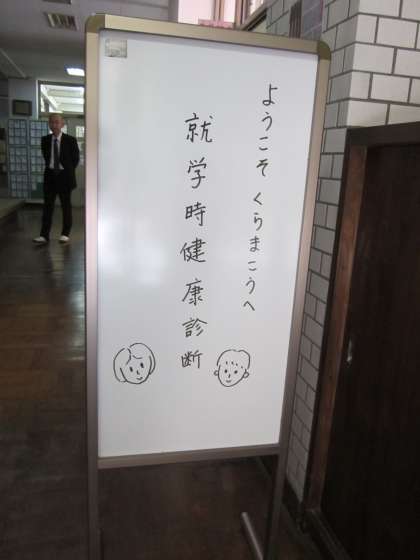 ようこそ くらまこうへ
就学時健康診断